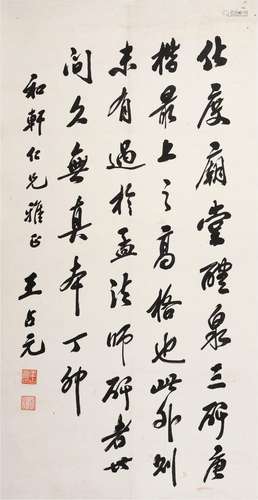 化度廟堂醴泉三碑唐
楷最上之高格也此外則
未有過於孟法師碑者世
間久無真本丁卯
和軒仁兄雅正 王占元